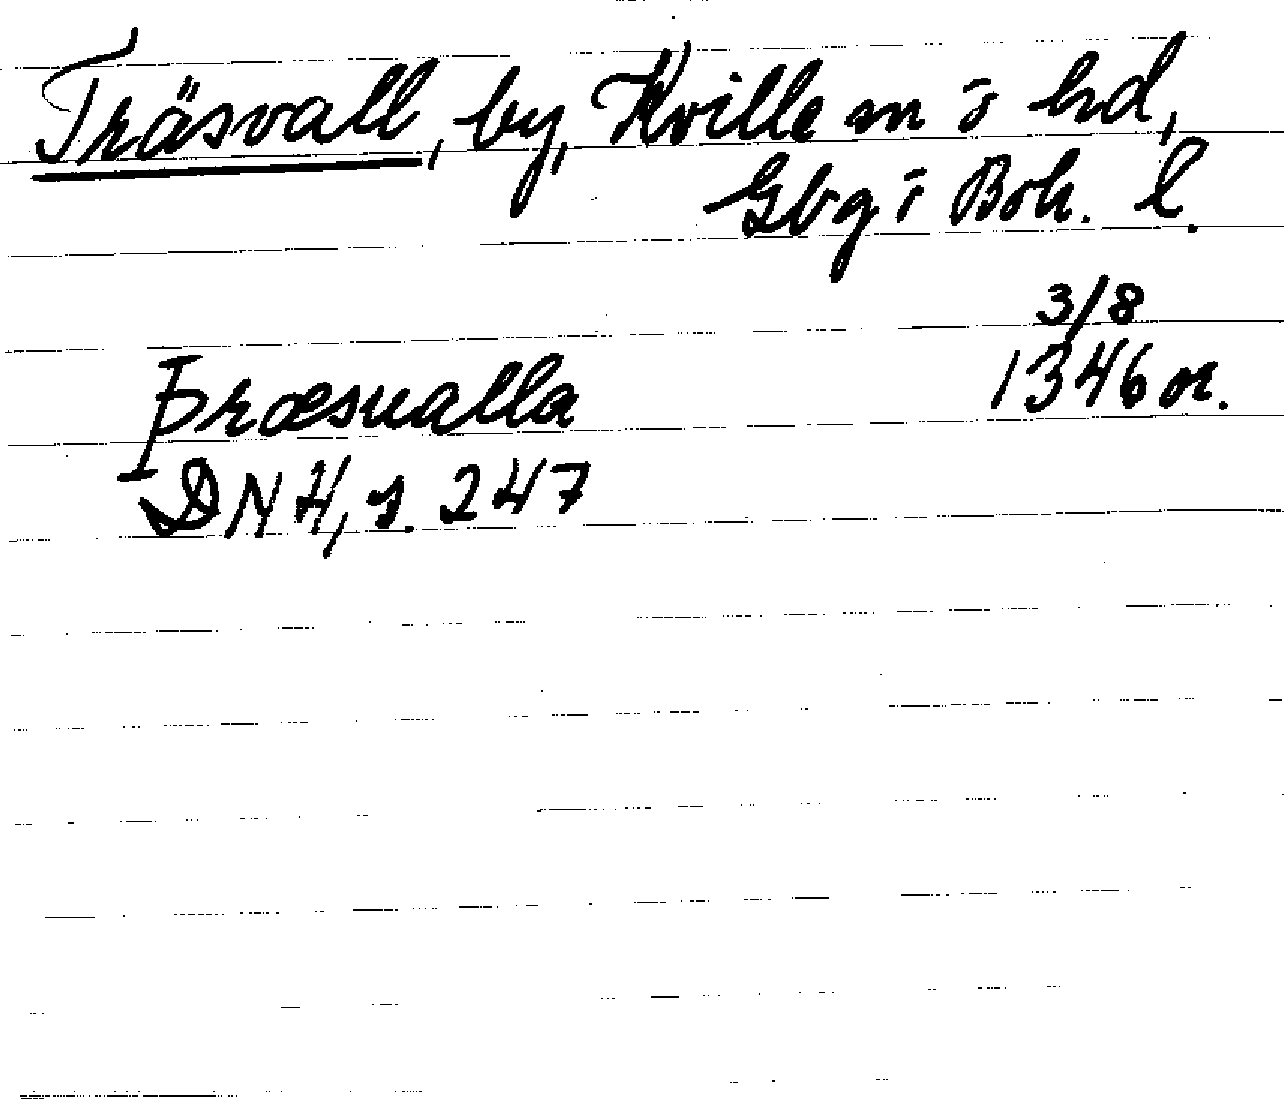 Träsvall, by, Kville sn o hd,
Gbg o Boh. l.
3/8
Þræsualla 1346 or.
DN 4, s. 247